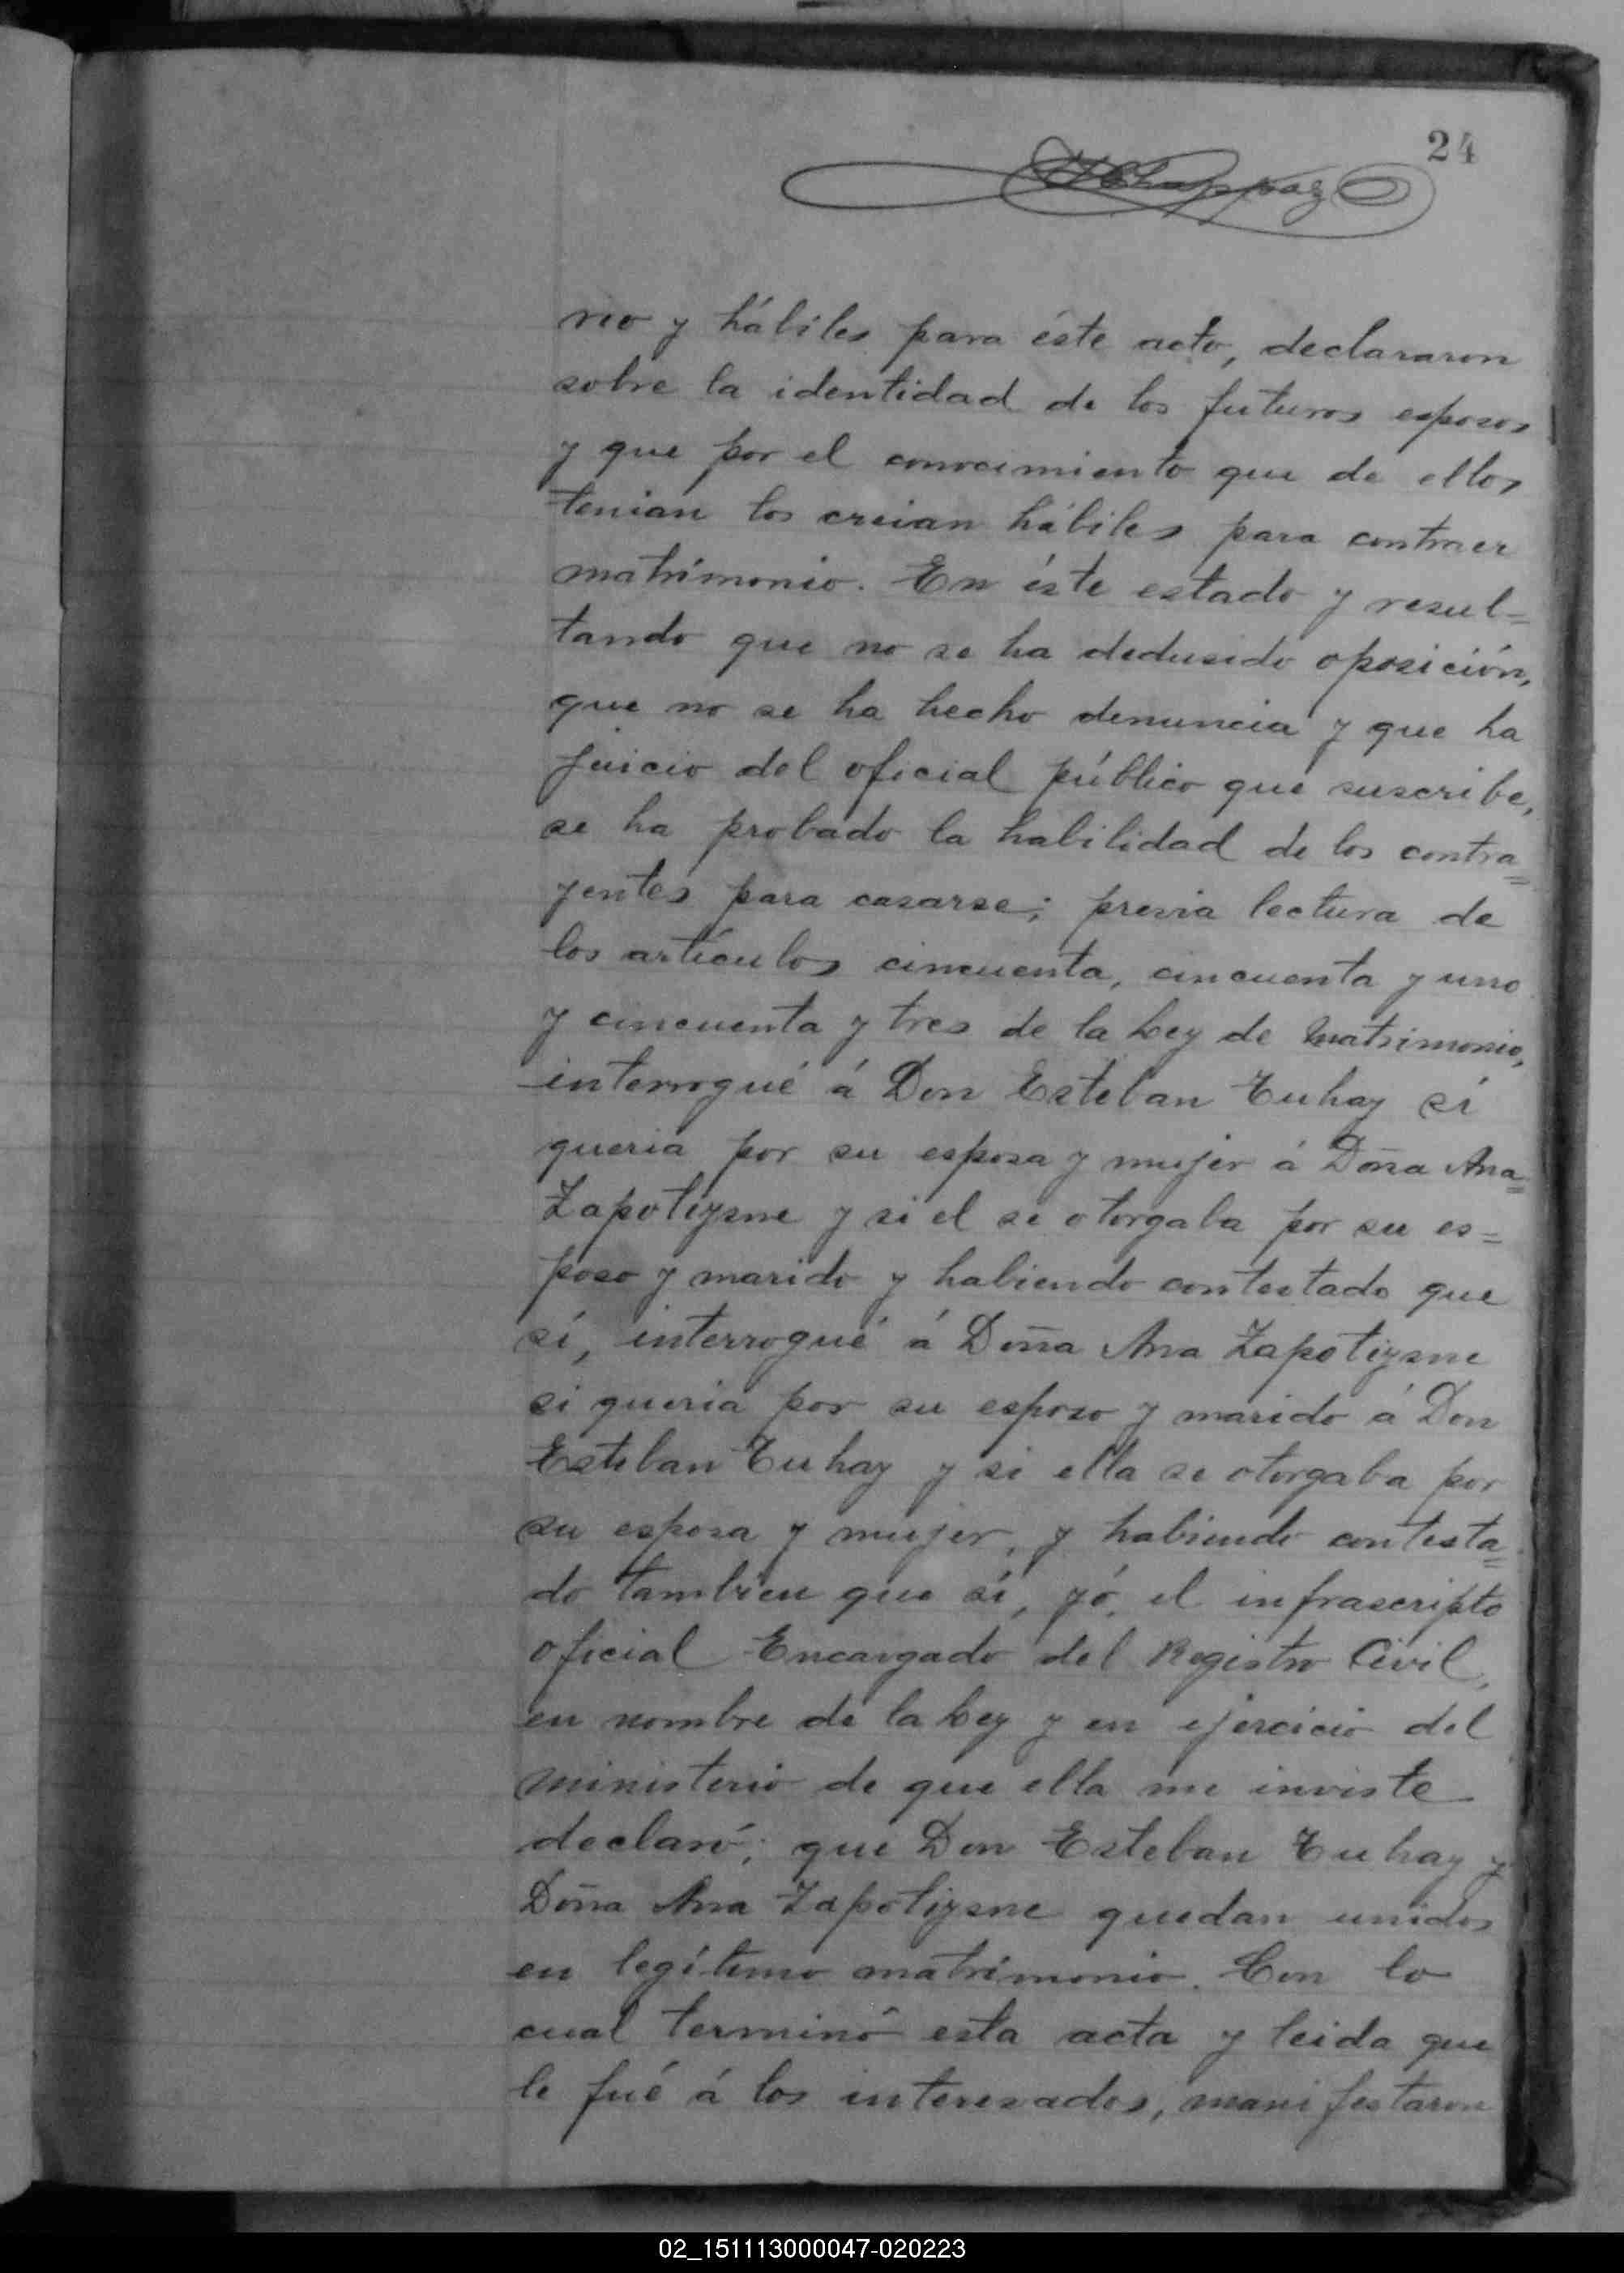 24
rio y hábiles para éste acto, declararon
sobre la identidad de los futuros esposos
y que por el conocimiento que de ellos
tenian los creian hábiles para contraer
matrimonio. En éste estado y resul=
tando que no se ha dedusido oposición,
que no se ha hecho denuncia y que ha
juicio del oficial público que suscribe,
se ha probado la habilidad de los contra=
yentes para casarse; previa lectura de
los artículos cincuenta, cincuenta y uno
y cincuenta y tres de la Ley de Matrimonio,
interrogué á Don Esteban Tuhay sí
queria por su esposa y mujer á Doña Ana=
Zapotizsne y si el se otorgaba por su es=
poso y marido y habiendo contestado que
sí, interrogué á Doña Ana Zapotizsne
si queria por su esposo y marido á Don
Esteban Tuhay y si ella se otorgaba por
su esposa y mujer, y habiendo contesta=
do tambien que sí, yó, el infrascripto
oficial Encargado del Registro Civil,
en nombre de la Ley y en ejercicio del
ministerio de que ella me inviste
declaró; que Don Esteban Tuhay y
Doña Ana Zapotizsne quedan unidos
en legítimo matrimonio. Con lo
cual terminó esta acta y leida que
le fué á los interesados, manifestaron
02_151113000047-020223